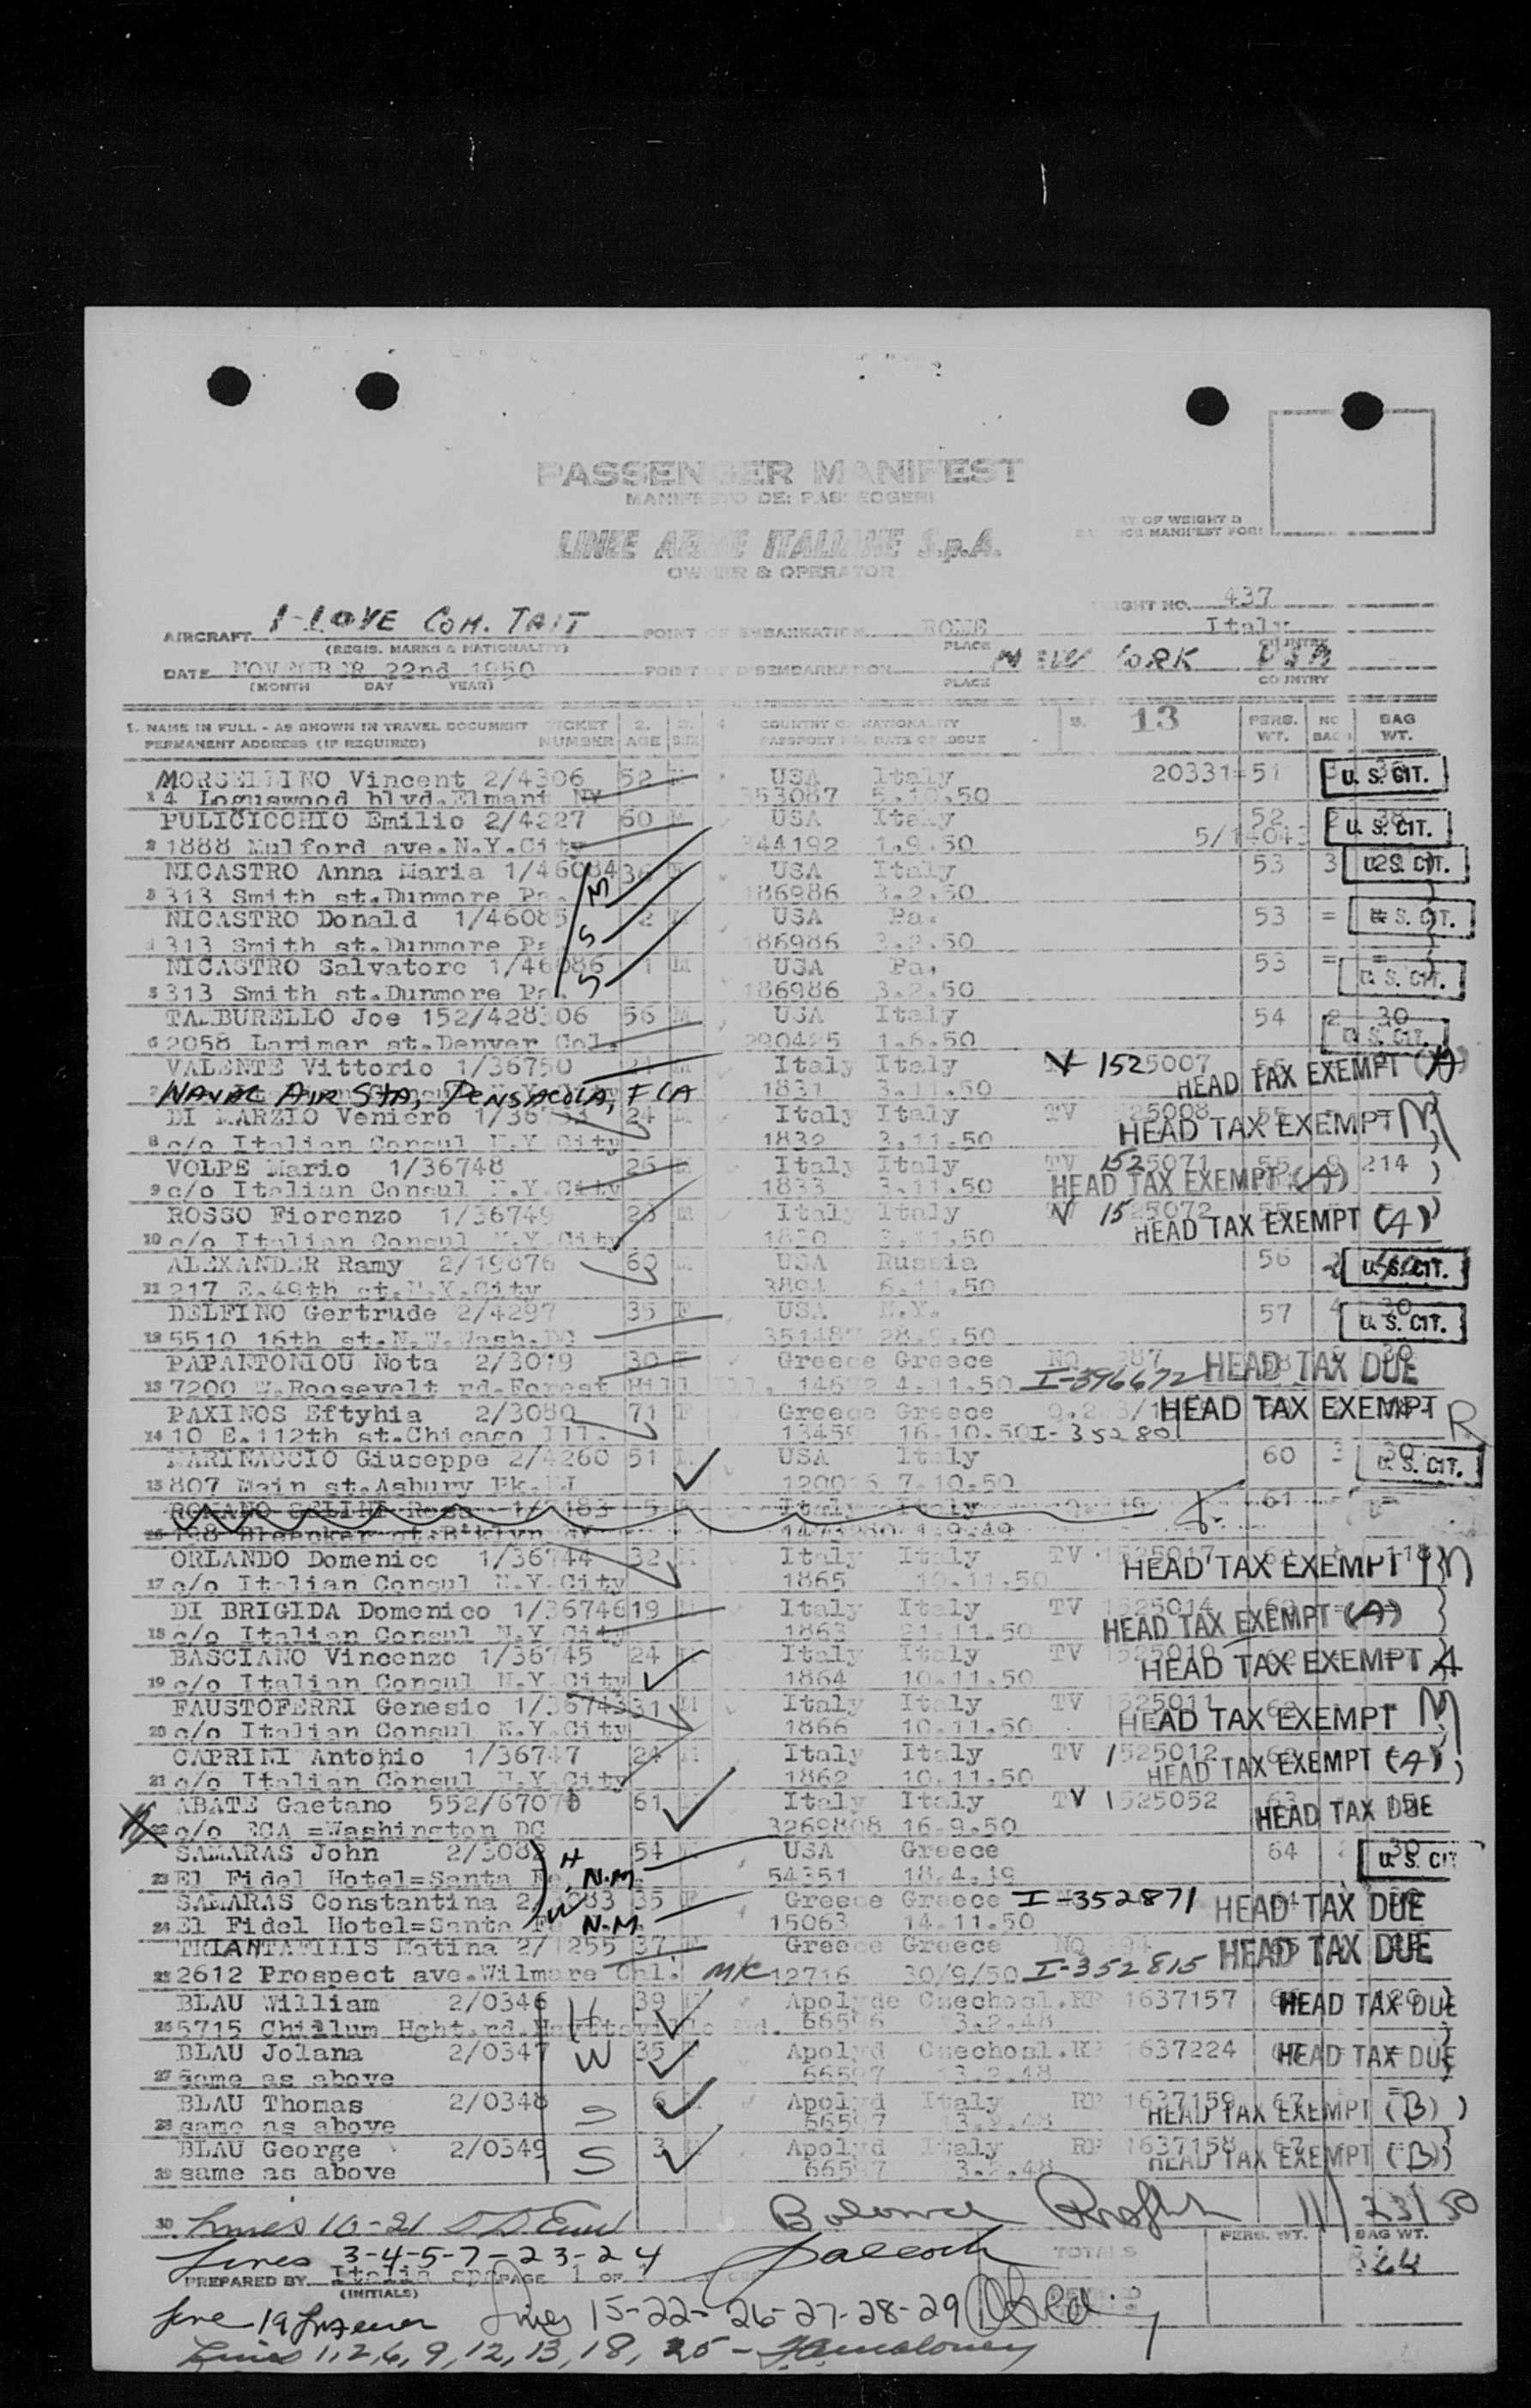 PASSENGER MANIFEST
LINEE AEREE ITALIANE S.p.A.
OWNER & OPERATOR
OF WEIGHT &
MANIFEST FOR:
FLIGHT NO. 437
AIRCRAFT I-LOVE COM. TAIT POINT OF EMBARKATION ROME Italy
(REGIS. MARKS & NATIONALITY) PLACE COUNTRY
DATE NOVEMBER 22nd 1950 POINT OF DISEMBARKATION NEW YORK USA
(MONTH DAY YEAR) PLACE COUNTRY
1. NAME IN FULL - AS SHOWN IN TRAVEL DOCUMENT TICKET 2. 3. 4 COUNTRY OF NATIONALITY 5. 13 PERS. NO BAG
PERMANENT ADDRESS (IF REQUIRED) NUMBER AGE SEX PASSPORT NO. DATE OF ISSUE WT. BAG WT.
MORSELLINO Vincent 2/4306 52 M USA Italy 20331 51 3 U. S. CIT.
4 Loguswood blvd. Elmont NY 353087 5.10.50
PULICICCHIO Emilio 2/4227 60 M USA Italy 52 2 38 U. S. CIT.
2 1888 Mulford ave.N.Y.City 344192 1.9.50
NICASTRO Anna Maria 1/46084 36 M USA Italy 53 3 U. S. CIT.
3 313 Smith st.Dunmore Pa. 186986 3.2.50
NICASTRO Donald 1/46085 2 S USA Pa. 53 = U. S. CIT.
313 Smith st.Dunmore Pa 186986 3.2.50
NICASTRO Salvatore 1/46086 1 M S USA Pa. 53 = = U. S. CIT.
5 313 Smith st.Dunmore Pa. 186986 3.2.50
TAMBURELLO Joe 152/428306 56 M USA Italy 54 2 30 U. S. CIT.
6 2058 Larimer st.Denver Col. 290425 1.6.50
VALENTE Vittorio 1/36750 M Italy Italy V 1525007 HEAD TAX EXEMPT (A)
NAVAL AIR STA, PENSACOLA, FLA 1831 3.11.50
DI MARZIO Veniero 24 M Italy Italy TV 1525008 HEAD TAX EXEMPT
8 c/o Italian Consul N.Y.City 1832 3.11.50
VOLPE Mario 1/36748 26 M Italy Italy TV 1525071 55 214 )
9 c/o Italian Consul N.Y.City 1833 3.11.50 HEAD TAX EXEMPT (A)
ROSSO Fiorenzo 1/36749 23 M Italy Italy V 1525072 55
10 c/o Italian Consul N.Y.City 1830 3.11.50 HEAD TAX EXEMPT (A)
ALEXANDER Ramy 2/19076 60 USA Russia 56 2 U. S. CIT.
11 217 E.49th st.N.Y.City 3894 6.11.50
DELFINO Gertrude 2/4297 35 F USA N.Y. 57 4 30 U. S. CIT.
12 5510 16th st.N.W.Wash.DC 28.9.50
PAPANTONIOU Nota 2/3079 30 F Greece Greece NQ HEAD TAX DUE
13 7200 W.Roosevelt rd.Forest Hill Ill. 4.11.50 I-396672
PAXINOS Eftyhia 2/3080 71 F Greece Greece HEAD TAX EXEMPT R
14 10 E.112th st.Chicago Ill. 13459 16.10.50 I-352801
MARINACCIO Giuseppe 2/4260 51 M USA Italy 60 3 30 U. S. CIT.
15 807 Main st.Asbury Pk.NJ 7.10.50
ROMANO SELINI Rosa 5 Italy Italy 61
Bleecker st. B'klyn 1.9.49
ORLANDO Domenico 1/36744 32 M Italy Italy TV 1525017 HEAD TAX EXEMPT
17 c/o Italian Consul N.Y.City 1865 10.11.50
DI BRIGIDA Domenico 1/36746 19 M Italy Italy TV 1525014
18 c/o Italian Consul N.Y.City 1863 21.11.50 HEAD TAX EXEMPT (A)
BASCIANO Vincenzo 1/36745 24 M Italy Italy TV 1525010 HEAD TAX EXEMPT A
19 c/o Italian Consul N.Y.City 1864 10.11.50
FAUSTOFERRI Genesio 1/36743 31 M Italy Italy TV 1525011 HEAD TAX EXEMPT
20 c/o Italian Consul N.Y.City 1866 10.11.50
CAPRINI Antonio 1/36747 24 M Italy Italy TV 1525012 HEAD TAX EXEMPT (A)
21 c/o Italian Consul N.Y.City 1862 10.11.50
ABATE Gaetano 61 Italy Italy TV 1525052 63 HEAD TAX DUE
22 c/o ECA =Washington DC 3269808 16.9.50
SAMARAS John 54 H USA Greece 64 2 30 U. S. CIT
23 El Fidel Hotel=Santa Fe, N.M. 54351 18.4.49
SAMARAS Constantina 2/3083 35 F W Greece Greece I-352871 HEAD TAX DUE
24 El Fidel Hotel=Santa Fe N.M. 15063 14.11.50
TRIANTAFILIS Matina 37 F Greece Greece NQ HEAD TAX DUE
25 2612 Prospect ave.Wilmore 12716 30/9/50 I-352815
BLAU William 2/0346 H 39 Apolyde Czechosl.RP 1637157 HEAD TAX DUE
26 5715 Chillum Hght.rd. 13.2.48
BLAU Jolana 2/0347 W 35 Apolyd Czechosl.RP 1637224 HEAD TAX DUE
27 same as above 66597 13.2.48
BLAU Thomas 2/0348 S 6 Apolyd Italy RP 1637159 67 =
28 same as above 66597 13.2.48 HEAD TAX EXEMPT (B)
BLAU George 2/0349 S 3 Apolyd Italy RP 1637158 67
29 same as above 66597 13.2.48 HEAD TAX EXEMPT (B)
30 Lines 10-21
Lines 3-4-5-7-23-24 TOTALS PERS. WT. BAG WT.
PREPARED BY Italia PAGE 1 OF 1
(INITIALS)
Line 19 Lines 15-22-26-27-28-29
Lines 1, 2, 6, 9, 12, 13, 18, 25 -